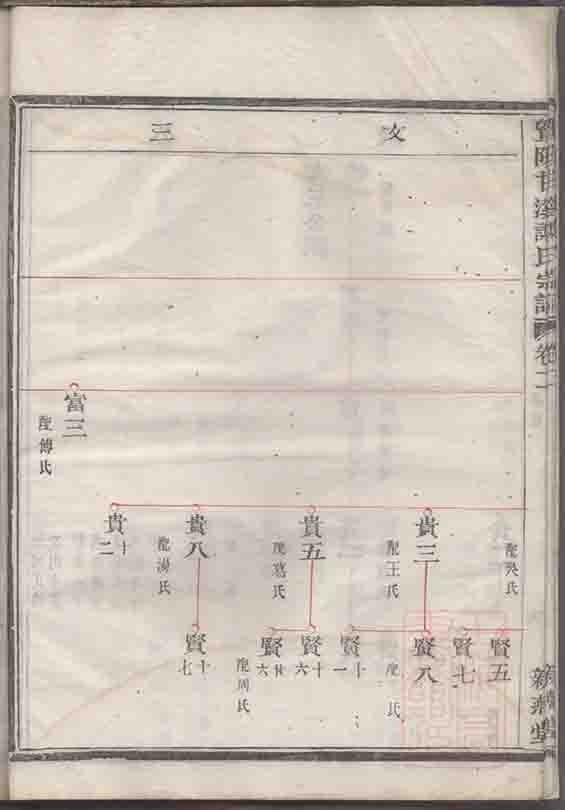 暨陽甘溪
氏宗譜
卷二
文
三
富三
配傅氏
配吳氏
貴三
配王氏
貴五
配葛氏
貴八
配湯氏
貴十二
賢五
賢七
賢八
配 氏
賢十一
賢十六
賢廿六
配周氏
賢十七